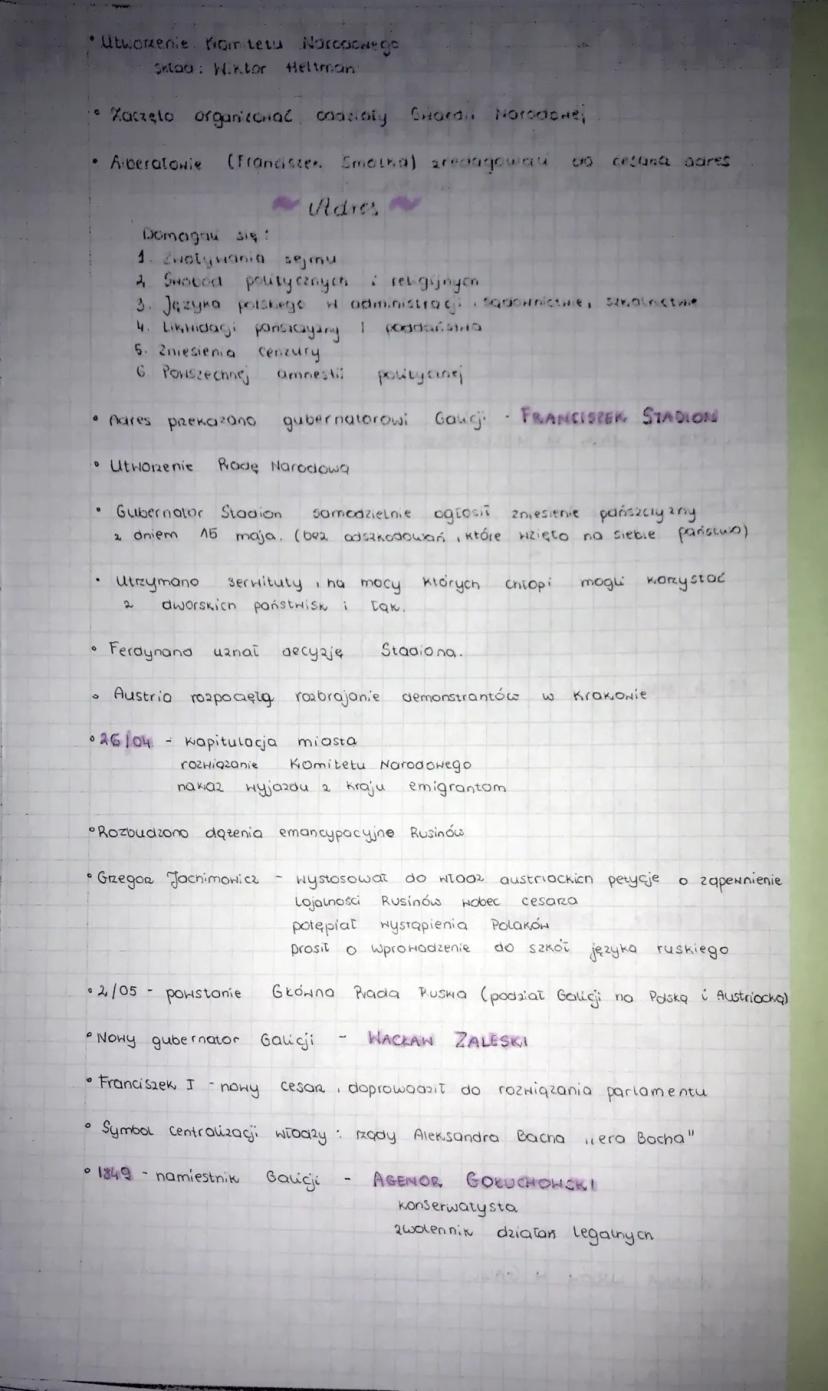 • Utworzenie Komitetu Narodowego
Skład: Wiktor Heltman
• Zaczęto organizować oddziały Gwardii Narodowej
• Liberałowie (Franciszek Smolka) zredagowali do cesarza adres
~ Adres ~
Domagali się:
1. Zwoływania sejmu
2. Swobód politycznych i religijnych
3. Języka polskiego w administracji, sądownictwie, szkolnictwie
4. Likwidacji pańszczyzny i poddaństwa
5. Zniesienia cenzury
6. Powszechnej amnestii politycznej
• Adres przekazano gubernatorowi Galicji - FRANCISZEK STADION
• Utworzenie Radę Narodową
• Gubernator Stadion samodzielnie ogłosił zniesienie pańszczyzny
z dniem 15 maja. (bez odszkodowań, które wzięto na siebie państwo)
• Utrzymano serwituty, na mocy których chłopi mogli korzystać
z dworskich pastwisk i łąk.
• Ferdynand uznał decyzję Stadiona.
• Austria rozpoczęłą rozbrajanie demonstrantów w Krakowie
• 26/04 - kapitulacja miasta
rozwiązanie Komitetu Narodowego
nakaz wyjazdu z kraju emigrantom
• Rozbudzono dążenia emancypacyjne Rusinów
• Grzegorz Jachimowicz - wystosował do władz austriackich petycje o zapewnienie
lojalności Rusinów wobec cesarza
potępiał wystąpienia Polaków
prosił o wprowadzenie do szkół języka ruskiego
• 2/05 - powstanie Główna Rada Ruska (podział Galicji na Polską i Austriacką)
• Nowy gubernator Galicji - WACŁAW ZALESKI
• Franciszek I - nowy cesarz, doprowadził do rozwiązania parlamentu
• Symbol centralizacji władzy: rządy Aleksandra Bacha „era Bacha"
• 1849 - namiestnik Galicji - AGENOR GOŁUCHOWSKI
konserwatysta
zwolennik działań legalnych